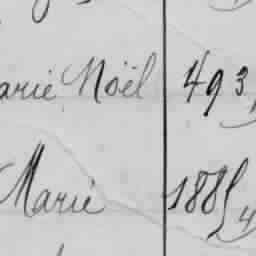 arie Noël 493
Marie 188